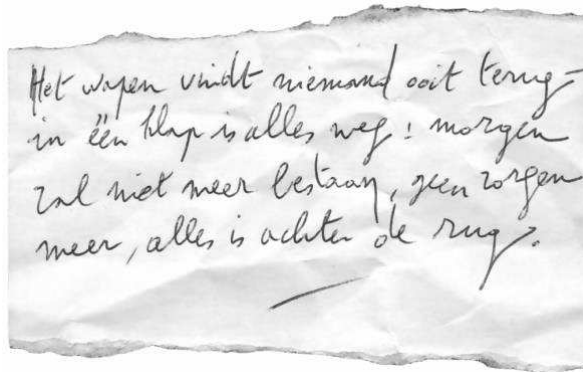 Het wapen vindt niemand ooit terug -
in één klap is alles weg : morgen
zal niet meer bestaan, geen zorgen
meer, alles is achter de rug.